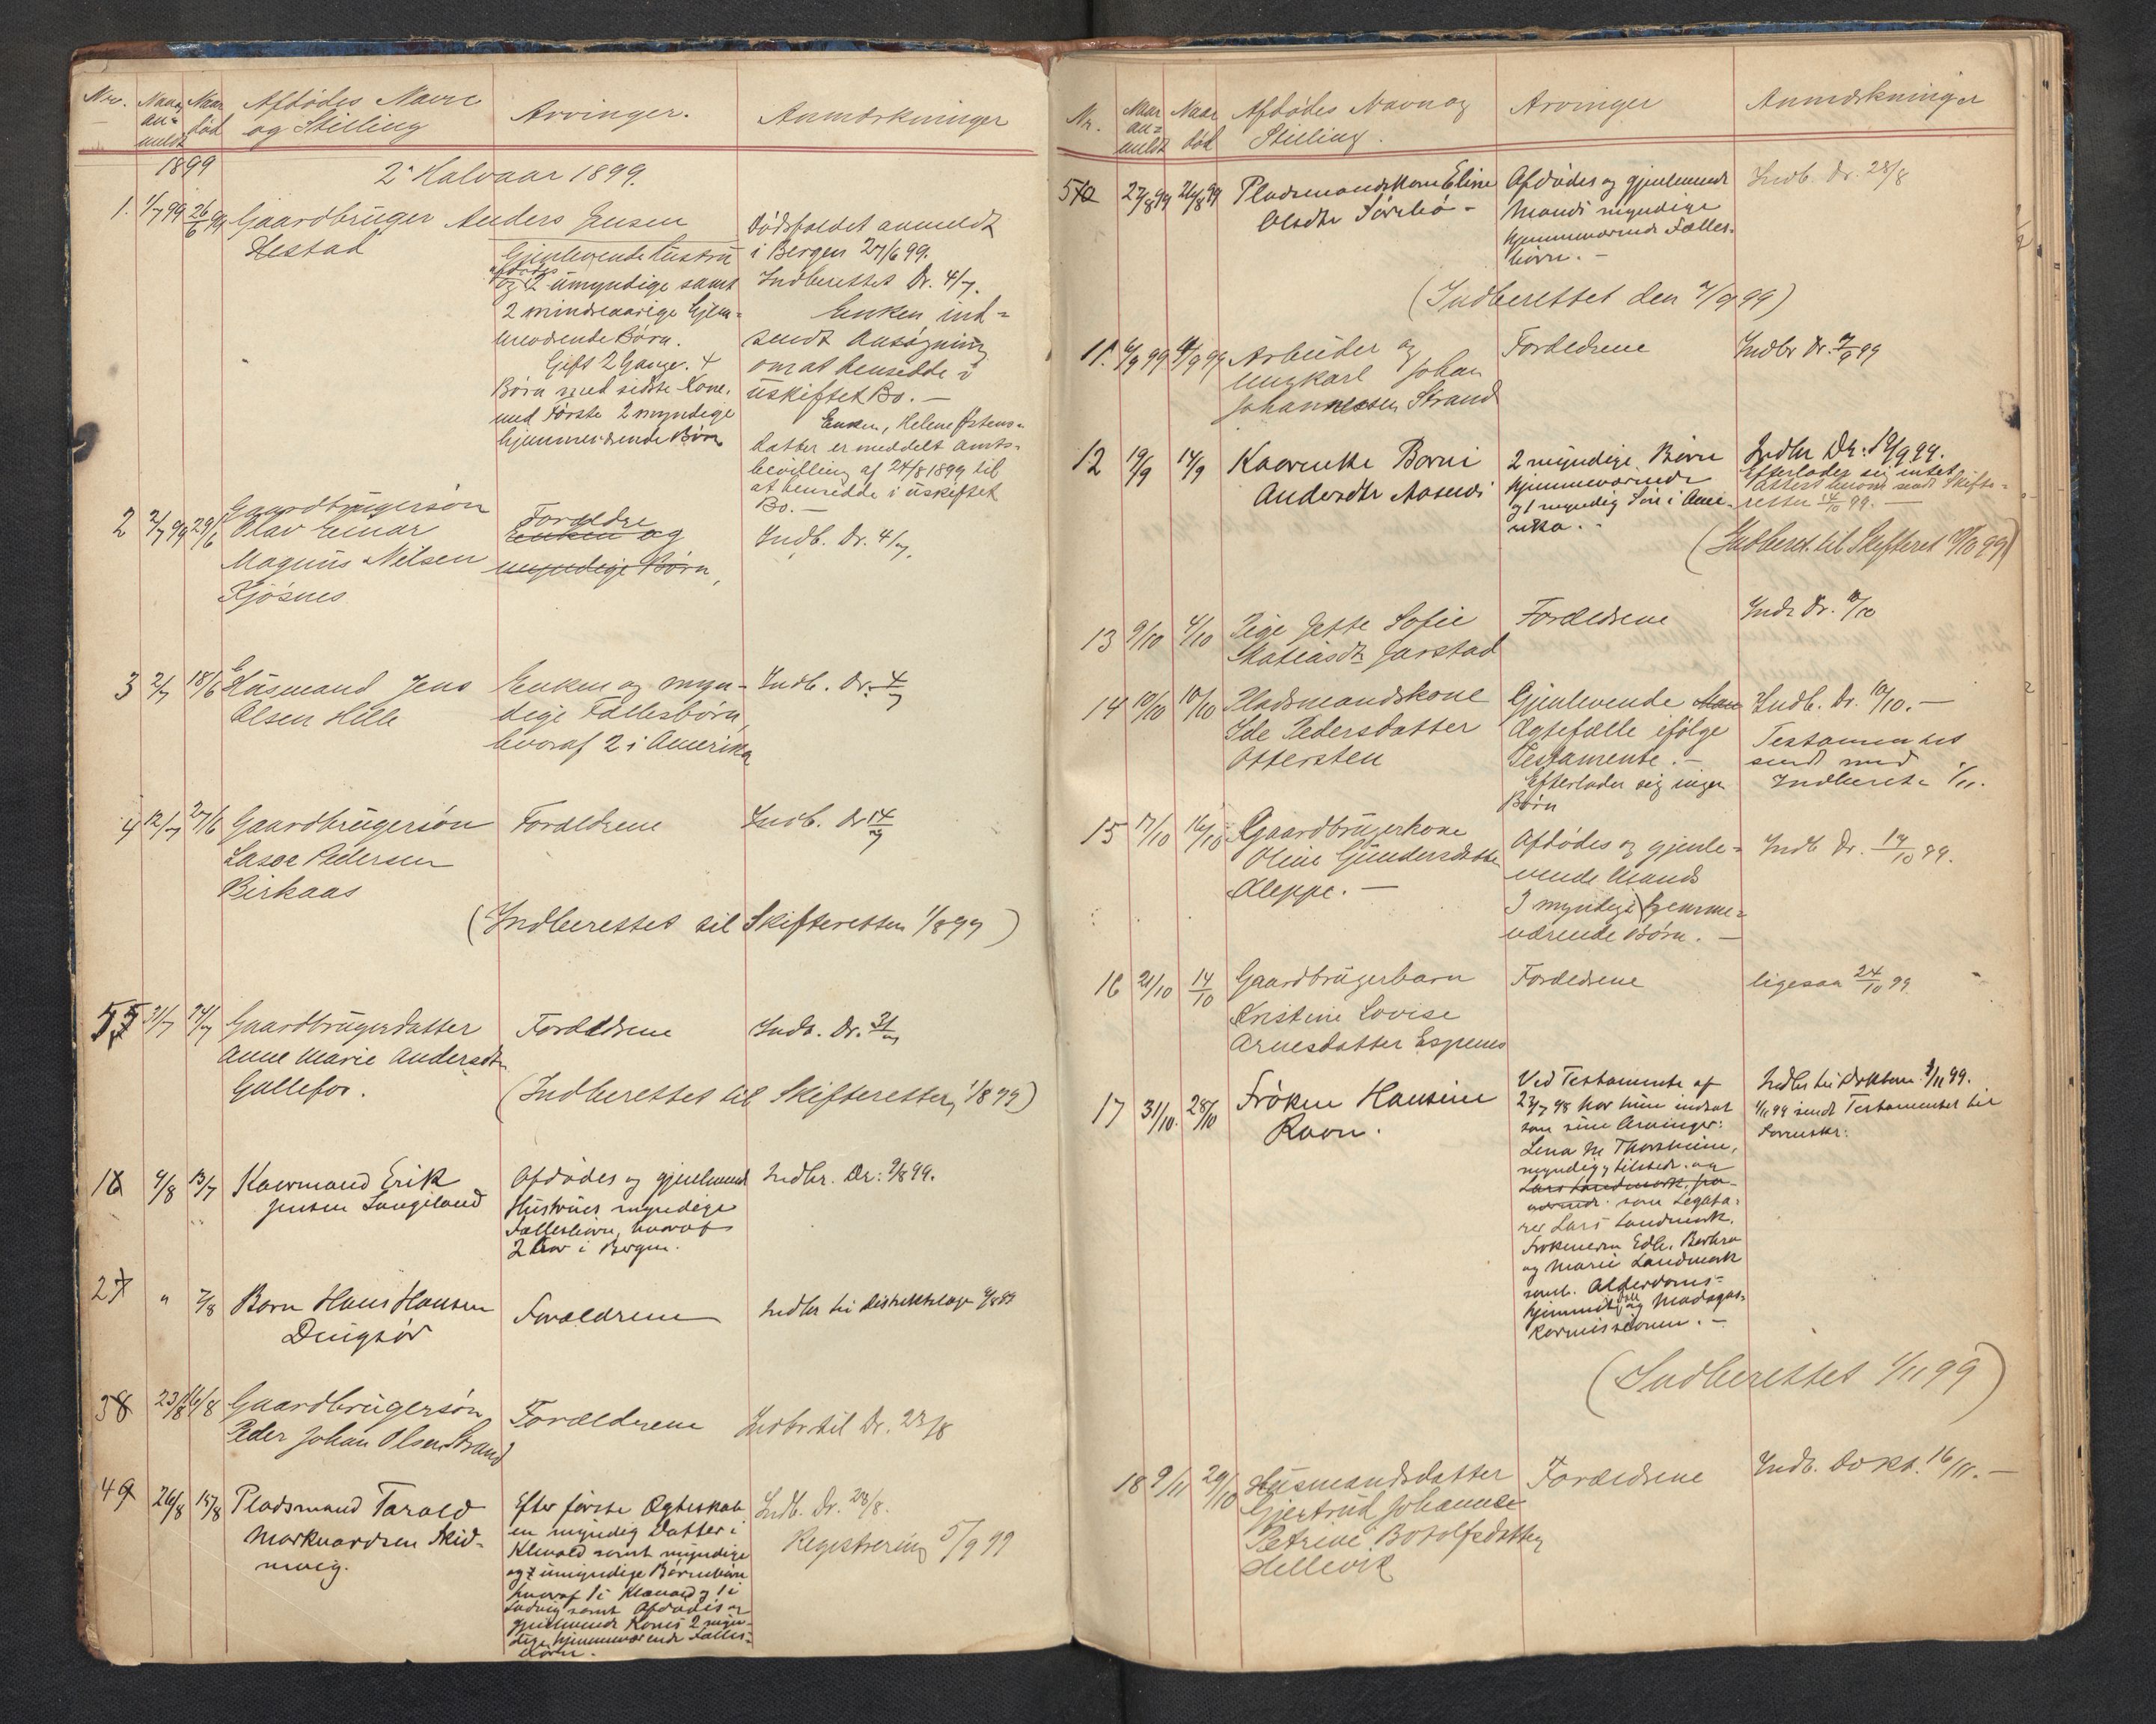 Nro.
Naar an=meldt
Naar död
Afdödes Navn og Stilling
Arvinger.
Anmærkninger
1899
2det Halvaar 1899.
1. 1/7 99 26/6 99 Gaardbrüger Anders Jensen
Hestad
Gjenlevende Hustrü
afdödes
og 2 ümyndige samt
2 mindreaarige hjem=
meværende Börn.
Gift 2 Gange. 4
Börn med sidste Kone,
med Förste 2 myndige
hjemmeværende Börn
Dödsfaldet anmeldt
i Bergen 27/6 99.
Indberettet Dr. 4/7.
Enken ind=
sendt Ansögning
om at hensidde i
üskiftet Bo. —
Enken, Helene Östens=
datter er meddelt Amts=
bevilling af 24/8 1899 til
at hensidde i üskiftet
Bo. —
2 2/7 99 29/6
Gaardbrügersön
Olav Einar
Magnüs Nilsen
Kjösnes
Forældre
Enken og
myndige Börn
Indb. Dr. 4/7.
3 2/7 18/6 Hüsmand Jens
Olsen Helle
Enken og myn=
dige Fællesbörn,
hvoraf 2 i Amerika
Indb. Dr. 4/7
4 12/7 27/6 Gaardbrügersön
Lasse Pedersen
Birkaas
Forældrene
Indb. Dr 14/7
(Indberettet til Skifteretten 1/8 99)
5 31/7 24/7 Gaardbrügerdatter
Anne Marie Andersdtr
Gullefos.
Forældrene
Indb. Dr. 31/7
(Indberettet til Skifteretten 1/8 99)
1 6 4/8 13/7 Kaarmand Erik
Jensen Langeland
Afdödes og gjenlevende
Hüstrües myndige
Fællesbörn, hvoraf
2 er i Bergen.
Indbr. Dr: 9/8 99.
2 7 " 7/8 Barn Hans Hansen
Dingsör
Forældrene
Indbr til Distriktslæge 9/8 99
3 8 23/8 16/8 Gaardbrügersön
Peder Johan Olsen Strand
Forældrene
Indbr til Dr. 23/8
4 9 26/8 15/8 Pladsmand Tarald
Markvardsen Skid=
mvig.
Efter förste Ægteskab
en myndig Datter i
Klævold samt myndige
og umyndige Börnebörn
hvoraf 1 i Klævold og 1 i
Ladvig samt Afdödes og
gjenlevende Kones 2 myn=
dige hjemmeværende Fælles=
börn.
Indb. Dr. 28/8.
Registrering 5/9 99
Nr.
Naar an=meldt
Naar död
Afdödes Navn og
Stilling.
Arvinger
Anmærkninger
5 10 27/8 99 26/8 99 Pladsmandskone Eline
Olsdtr Sörebö —
Afdödes og gjenlevende
Mands myndige
hjemmeværende Fælles=
börn. —
Indb. Dr. 28/8
(Indberettet den 7/9 99)
11. 6/9 99 4/9 99 Arbeider og
Ungkarl Johan
Johannessen Strand
Forældrene
Indbr Dr. 7/9 99
12 19/9 14/9 Kaarenke Borni
Andersdtr Aasendi
2 myndige Börn
hjemmeværende
og 1 myndig Sön i Ame=
rika. —
Indbr Dr: 19/9 99.
Efterlader sig intet
Attest herom sendt Skifte=
retten 14/10 99. —
(Indberet. til Skifteret 10/10 99)
13 9/10 4/10 Pige Jette Sofie
Matiasdtr Jarstad
Forældrene
Indb Dr. 10/10
14 10/10 10/10 Pladsmandskone
Ide Pedersdatter
Ottersten
Gjenlevende Man
Ægtefælle ifölge
Testamente. —
Efterlader sig ingen
Börn
Indb. Dr. 10/10. —
Testamentet
sendt med
Indberetn 1/11.
15 17/10 16/10 Gaardbrügerkone
Oline Gündersdatter
Kleppe. —
Afdödes og gjenle=
vende Mands
3 myndige hjemme=
værende Börn. —
Indb Dr. 17/10 99.
16 21/10 14/10 Gaardbrügerbarn
Kristine Lovise
Arnesdatter Espenes
Forældrene
ligesaa 24/10 99
17 31/10. 28/10 Fröken Hansine
Ravn.
Ved Testamente af
23/7 98 har hün indsat
som sine Arvinger:
Lena M Thorsheim,
myndig, tilstede og
Lars Landmark, fra=
værende som Legata=
rer Lars Landmark,
Frökenerne Edle, Barbra
og Marie Landmark
saml. Alderdoms=
hjemmet i Dale og Madagas=
karmissionen. —
Indbr til Doktoren 1/11 99.
1/11 99 sendt Testamentet til
Sorenskr:
(Indberettet 1/11 99)
18 9/11 29/10 Hüsmandsdatter
Gjertrüd Johanne
Petrine Botolfsdatter
Hellevik
Forældrene
Indb. Dokt. 16/11. —